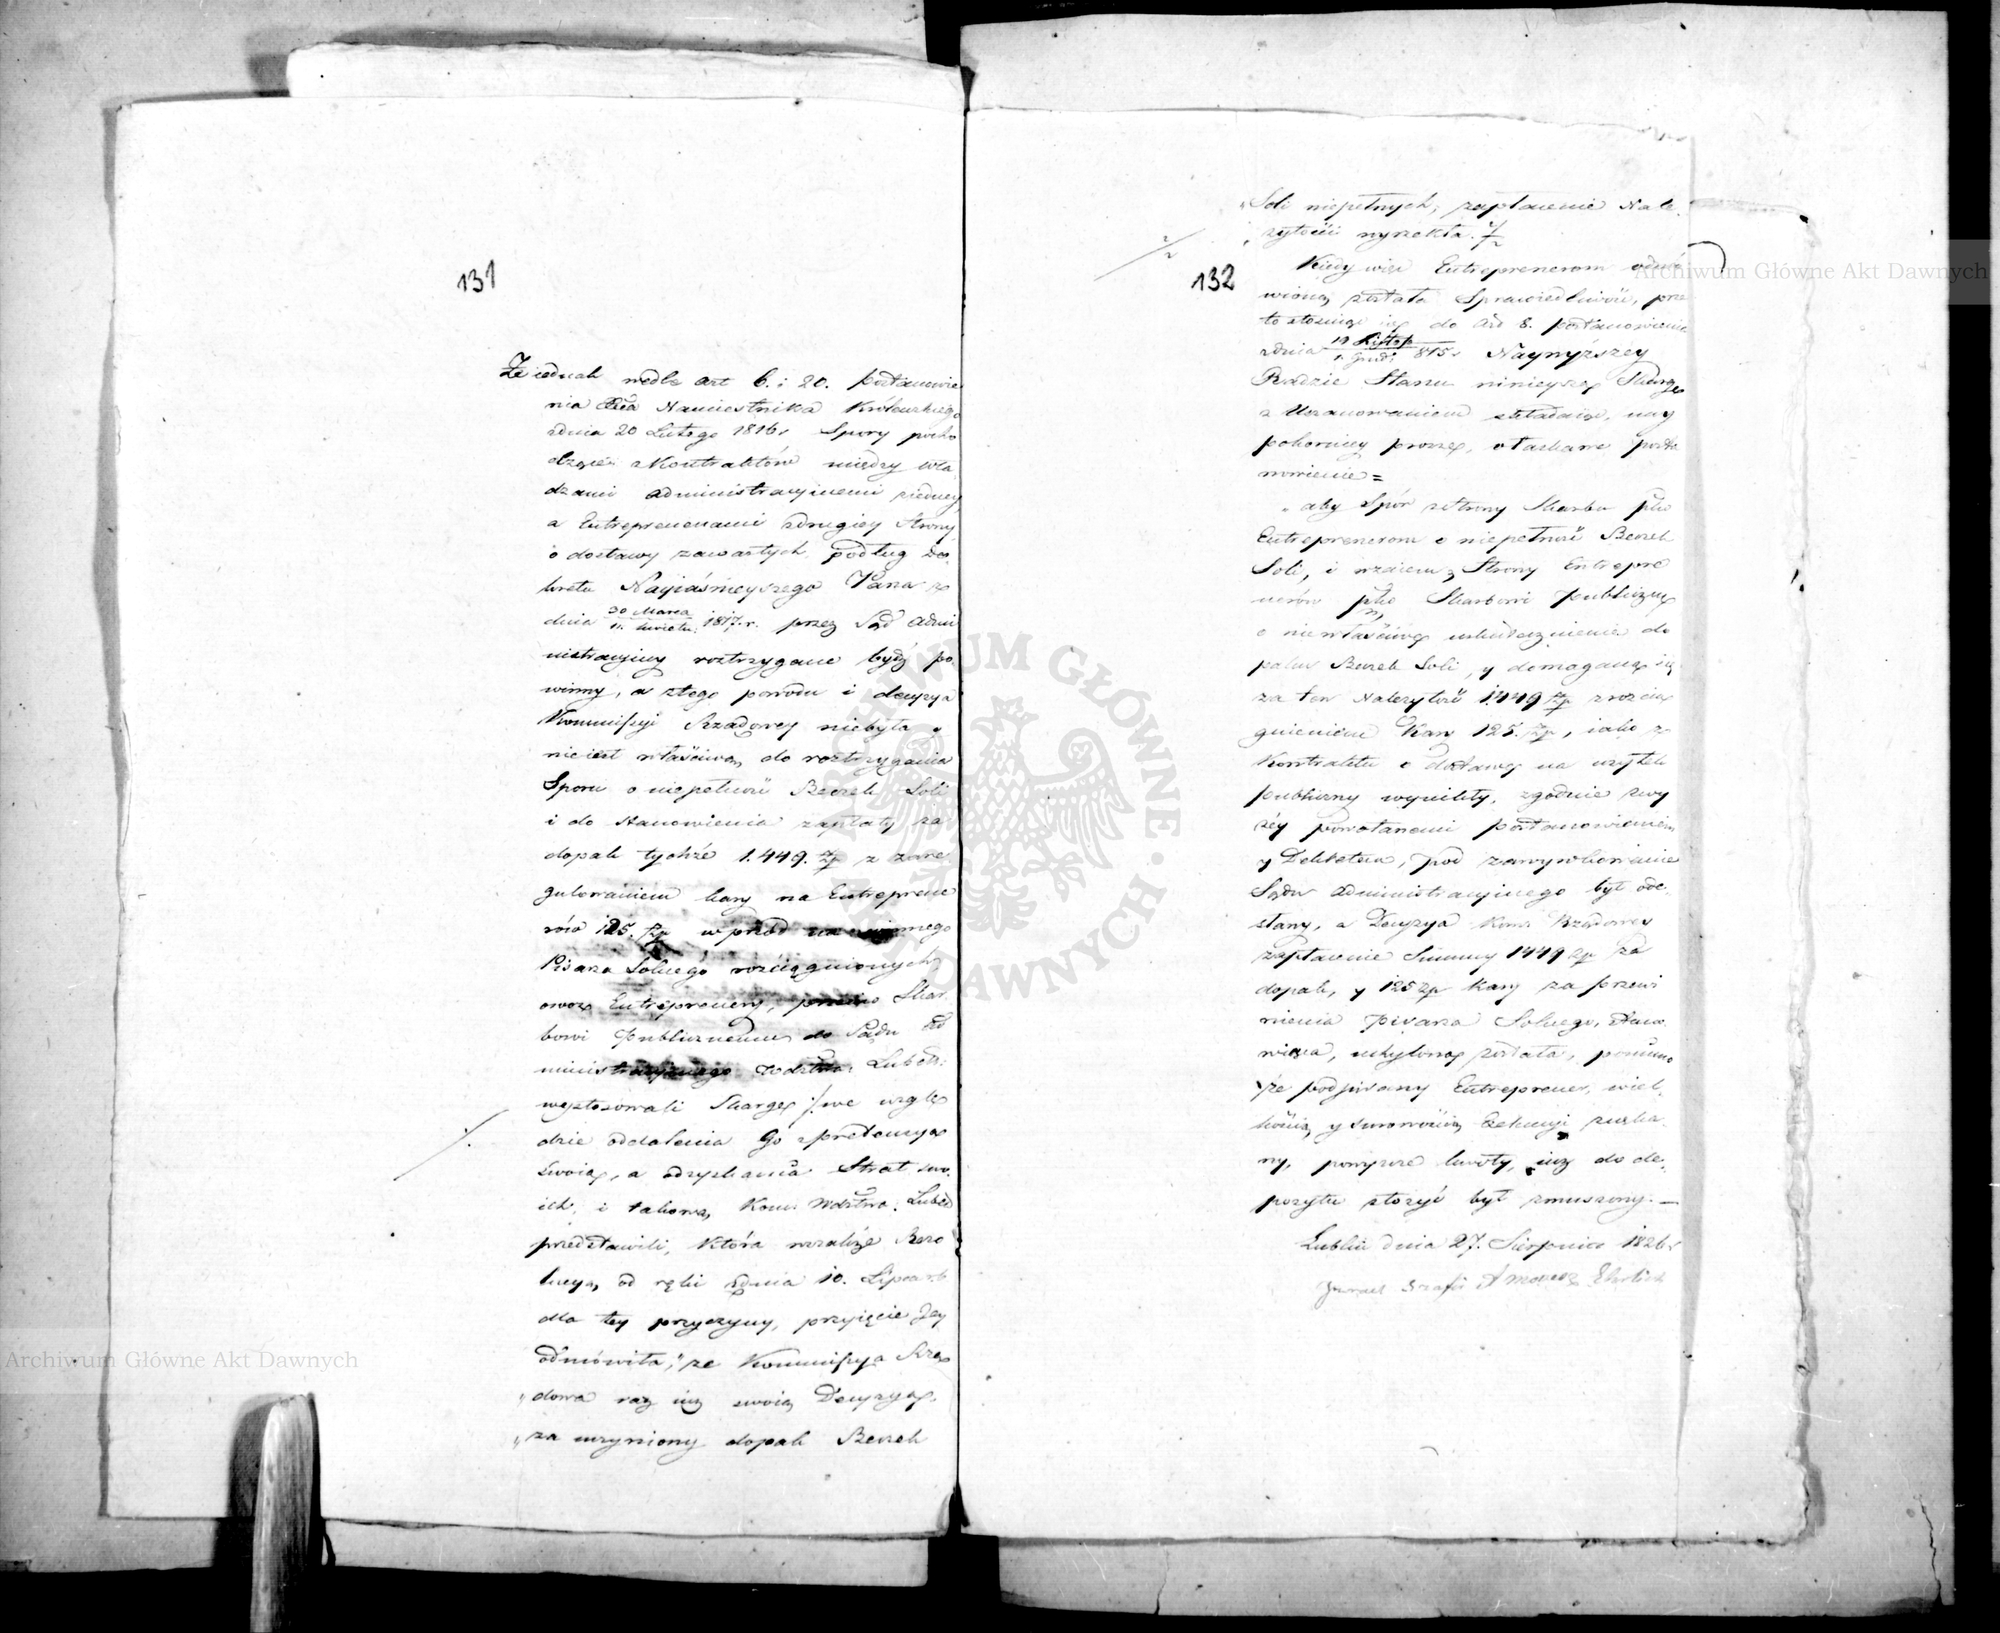 131
Że iednak wedle art 6. i 20. postanowie
nia Xcia Namiestnika Królewskiego
zdnia 20 Lutego 1816 r Spory pocho
dzące z Kontraktów między wła
dzami administracyinemi ziedney
a Entreprenerami zdrugiey Strony
o dostawy zawartych, podług De
kretu Nayiaśnieyszego Pana z
dnia 30 Marca 11. Kwietn: 1817. r. przez Sąd Admi
nistracyiny roztrzygane bydź po
winny, a ztego powodu i decyzya
Kommissyi Rządowey niebyła y
nieiest właściwą do roztrzygania
Sporu o niepełność Beczek Soli
i do stanowienia zapłaty za
dopak tychże 1.449. Zp z zare
gulowaniem kary na Entreprene
rów 125. Zp wprzód na winnego
Pisarza Solnego rozciągnionych
owoż Entreprenery, przeciw Skar
bowi Publicznemu do Sądu Ad
ministracyinego Wdztwa Lubel:
wystosowali Skargę /: we wzglę
dzie oddalenia Go zpretensyą
Swoią, a odzyskania Strat swo
ich, i takową Kom: Wdztwa: Lubel
przedstawili, która wszakże Rezo
lucyą od ręki zdnia 10. Lipca r b
dla tey przyczyny, przyięcie Jey
odmówiła, "że Kommissya Rzą
„dowa raz iuż swoią Decyzyą,
„za uczyniony dopak Beczek
132
„Soli niepełnych, zapłacenie Nale
„żytości wyrzekła.
Kiedy więc Entreprenerom odmó
wioną została Sprawiedliwość, prze
to stosuiąc się do Art 8. postanowienia
zdnia 19 Listop 1. Grud: 815 r Naywyższey
Radzie Stanu ninieyszą Skargę
z Uszanowaniem składaiąc, nay
pokorniey proszę, o łaskawe posta
nowienie =
„aby Spór zstrony Skarbu pko
Entreprenerom o niepełność Beczek
Soli, i wzaiemną Strony Entrepre
nerów pko Skarbowi Publiczne
o niewłaściwe uskutecznienie do
paku Beczek Soli, y domaganie się
za ten Należytość 1449 Zp z rozcią
gnieniem Kary 125. Zp, iako z
Kontraktu o dostawę na użytek
publiczny wynikły, zgodnie zwy
żey powołanemi postanowieniem
y Dekretem, pod zawyrokowanie
Sądu administracyinego był ode
słany, a Decyzya Kom: Rządowey
zapłacenie Summy 1449 Zp za
dopak, y 125 Zp Kary za przewi
nienia Pisarza Solnego, stano
wiąca, uchyloną została, pomimo
że podpisany Entreprener, wiel
kością y surowością Exekucyi znękа
ny, powyższe kwoty, iuż do de
pozytu złożyć był zmuszony. —
Lublin dnia 27. Sierpnia 1826 r
Ehrlich
Archiwum Główne Akt Dawnych
Archiwum Główne Akt Dawnych
ARCHIWUM GŁÓWNE AKT DAWNYCH